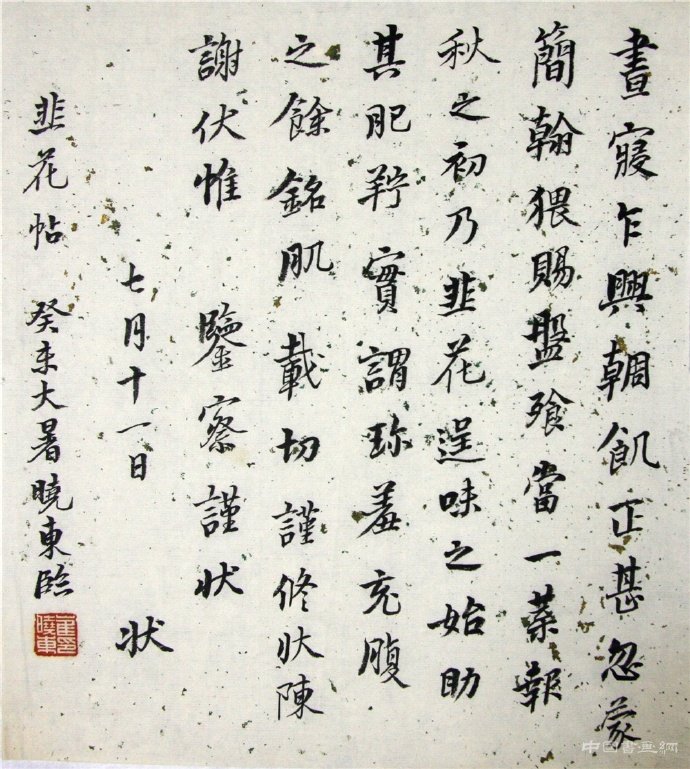 晝寢乍興輖飢正甚忽蒙
簡翰猥賜盤飧當一葉報
秋之初乃韭花逞味之始助
其肥羜實謂珍羞充腹
之餘銘肌載切謹修狀陳
謝伏惟 鑒察謹狀
七月十一日 狀
韭花帖 癸未大暑曉東臨
中国書画網